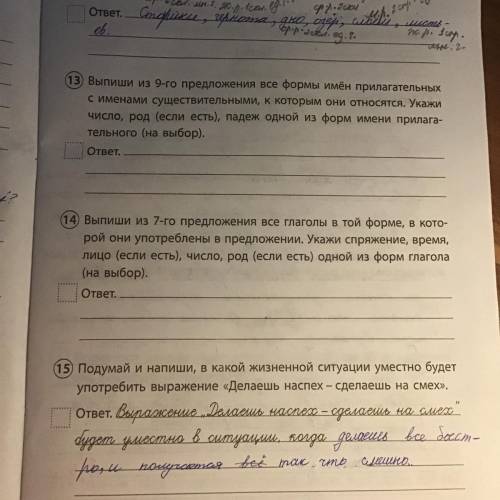 Ответ. Старики, чернота, дно, озёр,
13 Выпиши из 9-го предложения все формы имён прилагательных
с именами существительными, к которым они относятся. Укажи
число, род (если есть), падеж одной из форм имени прилага-
тельного (на выбор).
Ответ.
14 Выпиши из 7-го предложения все глаголы в той форме, в кото-
рой они употреблены в предложении. Укажи спряжение, время,
лицо (если есть), число, род (если есть) одной из форм глагола
(на выбор).
Ответ.
15 Подумай и напиши, в какой жизненной ситуации уместно будет
употребить выражение «Делаешь наспех – сделаешь на смех».
Ответ. Выражение „Делаешь наспех – сделаешь на смех"
будет уместно в ситуации, когда делаешь все быст-
ро, и получается всё так, что смешно.